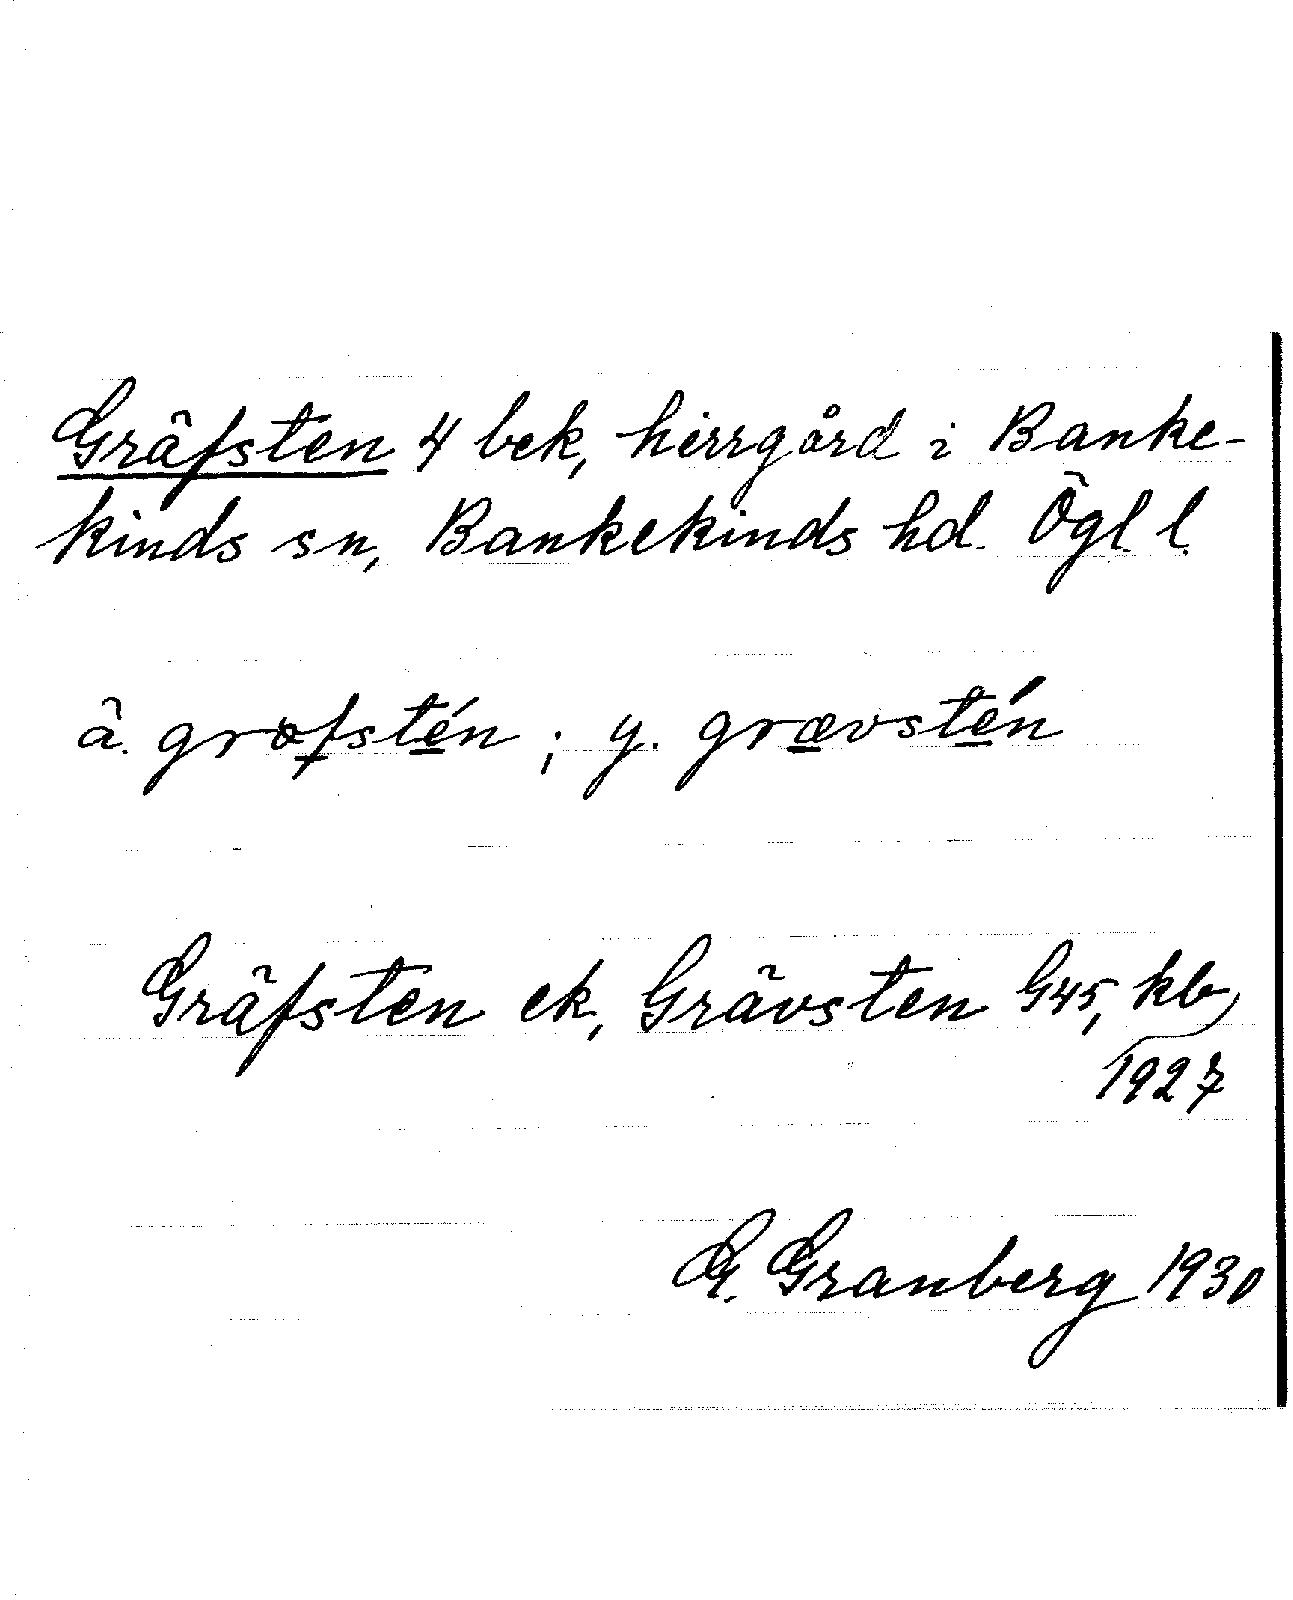 Gräfsten 4 bek, herrgård i Banke-
kinds sn, Bankekinds hd. Ögl. l.
ä. grofstén ; y. grævstén
Gräfsten ek, Grävsten G45, kb
1927
G. Granberg 1930